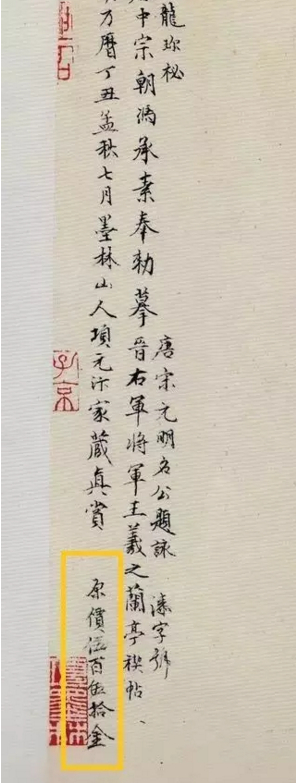 龍珎秘
唐宋元明名公題詠 漆字號
中宗朝馮承素奉勅摹晉右軍將軍王羲之蘭亭禊帖
万曆丁丑孟秋七月墨林山人項元汴家藏真賞 原價伍百伍拾金
子京